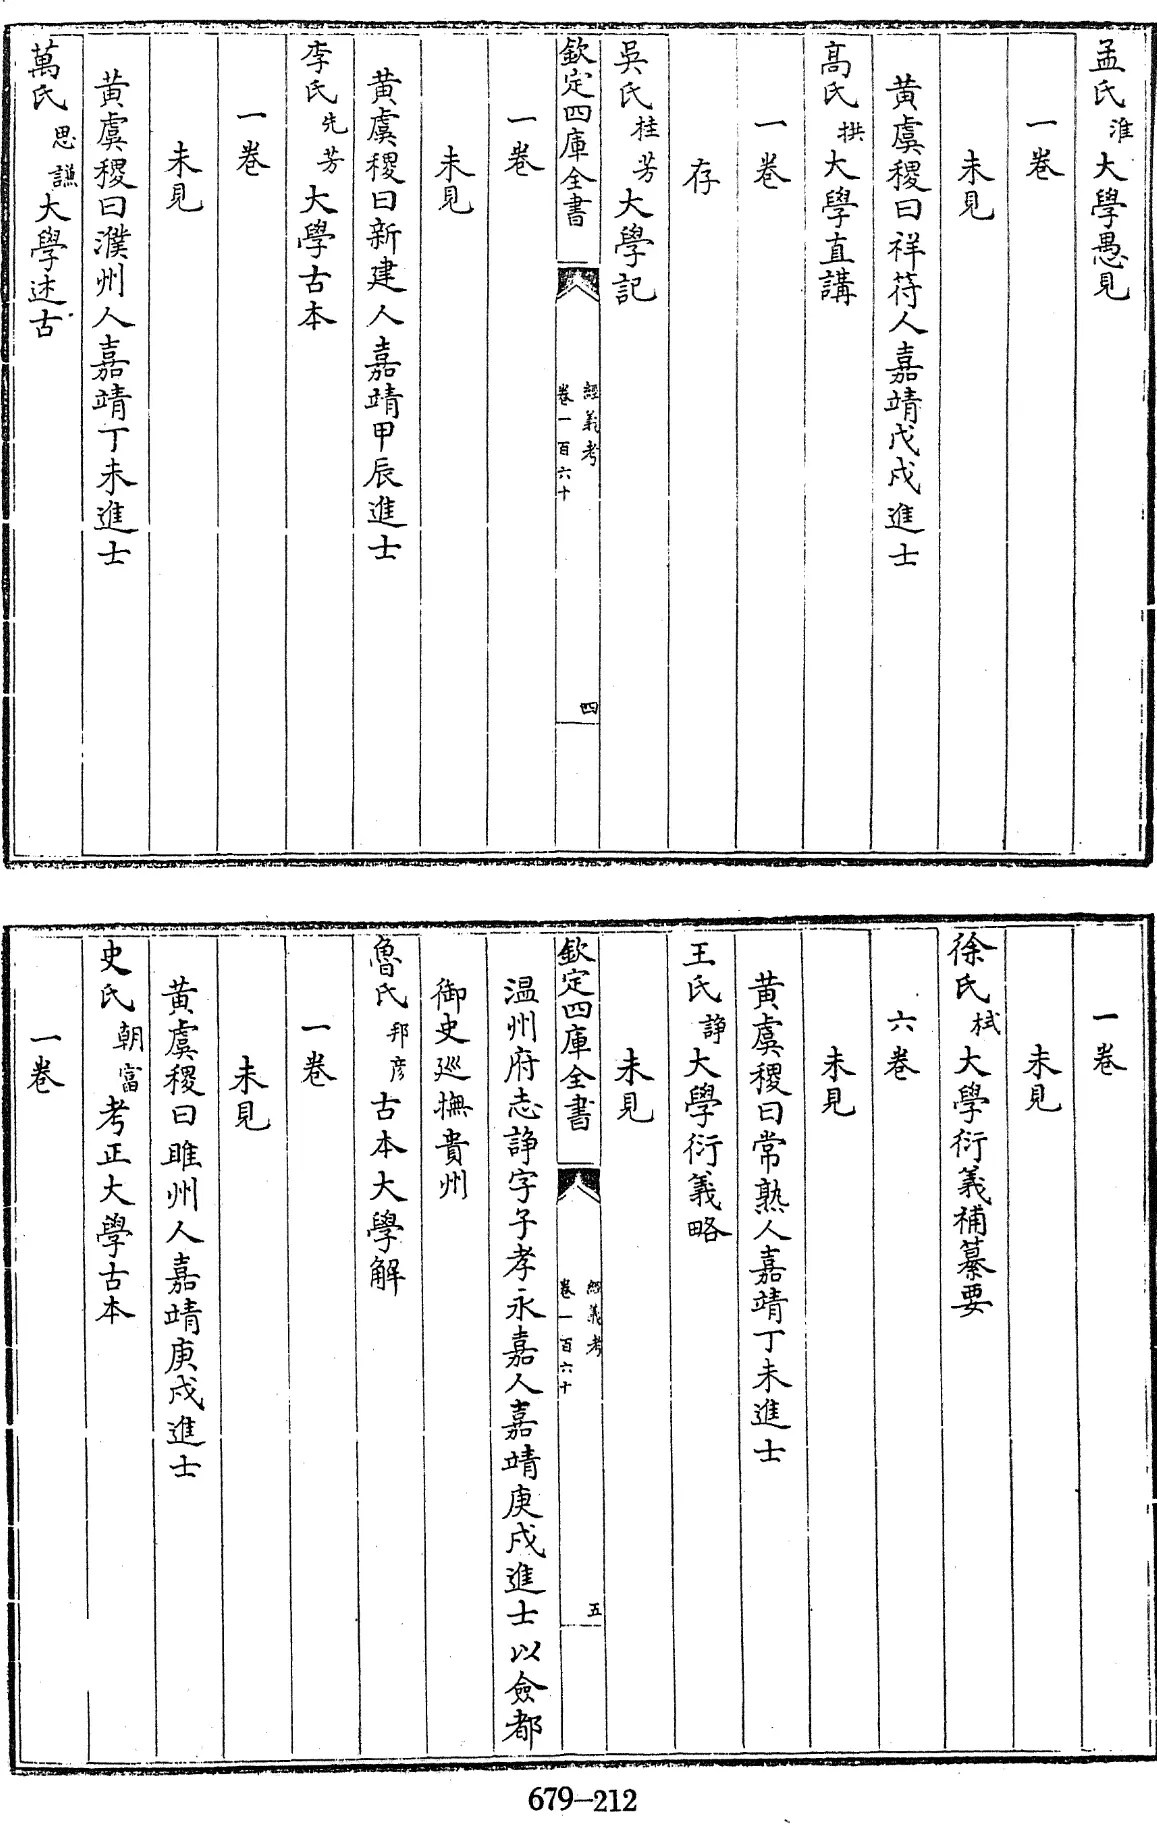 孟氏淮大學愚見
一卷
未見
黄虞稷曰祥符人嘉靖戊戌進士
髙氏拱大學直講
一卷
存
吳氏桂芳大學記
欽定四庫全書
經義考
卷一百六十
四
一卷
未見
黄虞稷曰新建人嘉靖甲辰進士
李氏先芳大學古本
一卷
未見
黄虞稷曰濮州人嘉靖丁未進士
萬氏思謙大學述古
一卷
未見
徐氏栻大學衍義補纂要
六卷
未見
黄虞稷曰常熟人嘉靖丁未進士
王氏諍大學衍義略
未見
欽定四庫全書
經義考
卷一百六十
五
温州府志諍字子孝永嘉人嘉靖庚戌進士以僉都
御史廵撫貴州
魯氏邦彦古本大學解
一卷
未見
黄虞稷曰睢州人嘉靖庚戌進士
史氏朝富考正大學古本
一卷
679-212